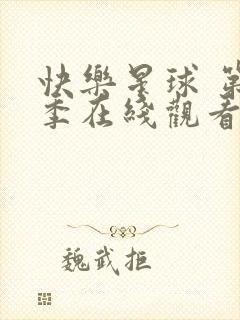 快樂星球 第
季在綫觀看
魏武拒